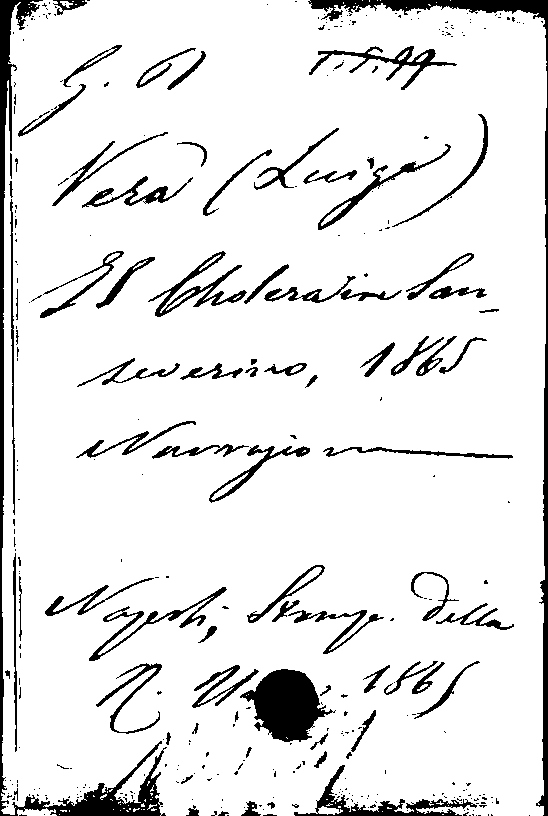 G. 61
Vera (Luigi)
Il Cholera in San-
severino, 1865
Narrazione
Napoli, Stamp. della
R. 1865